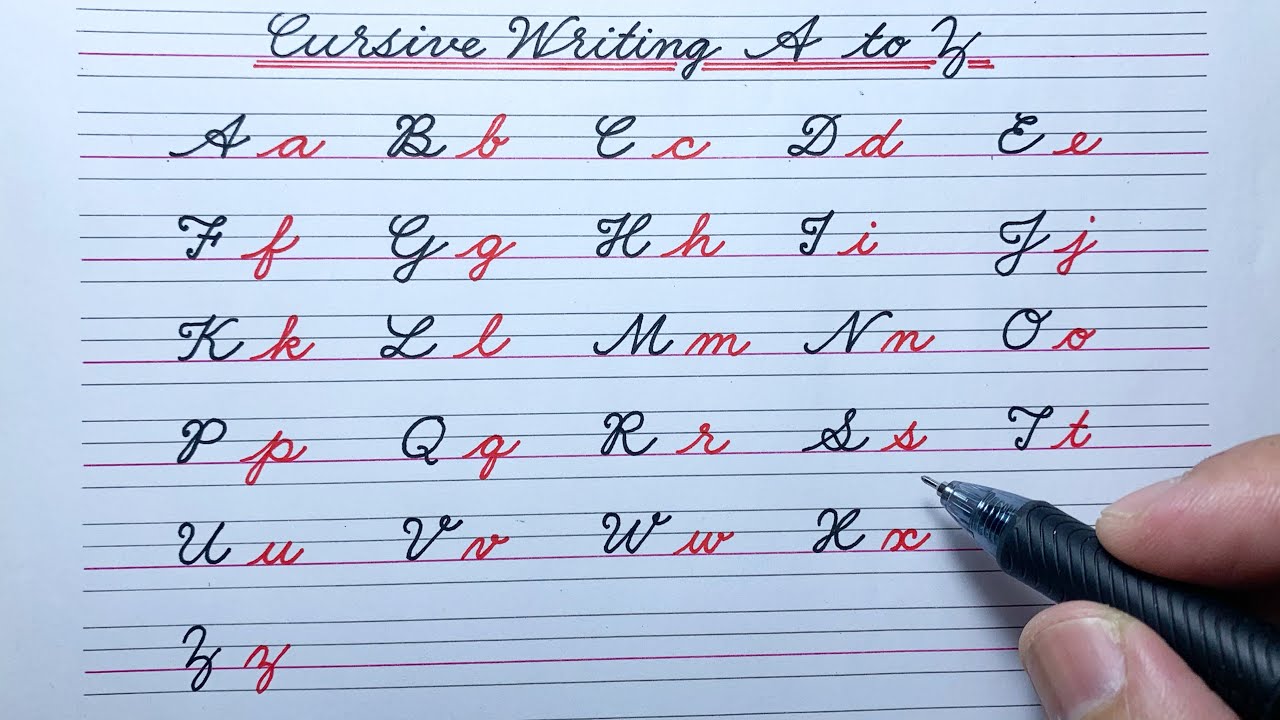 Cursive Writing A to Z
A a B b C c D d E e
F f G g H h I i J j
K k L l M m N n O o
P p Q q R r S s T t
U u V v W w X x
Z z